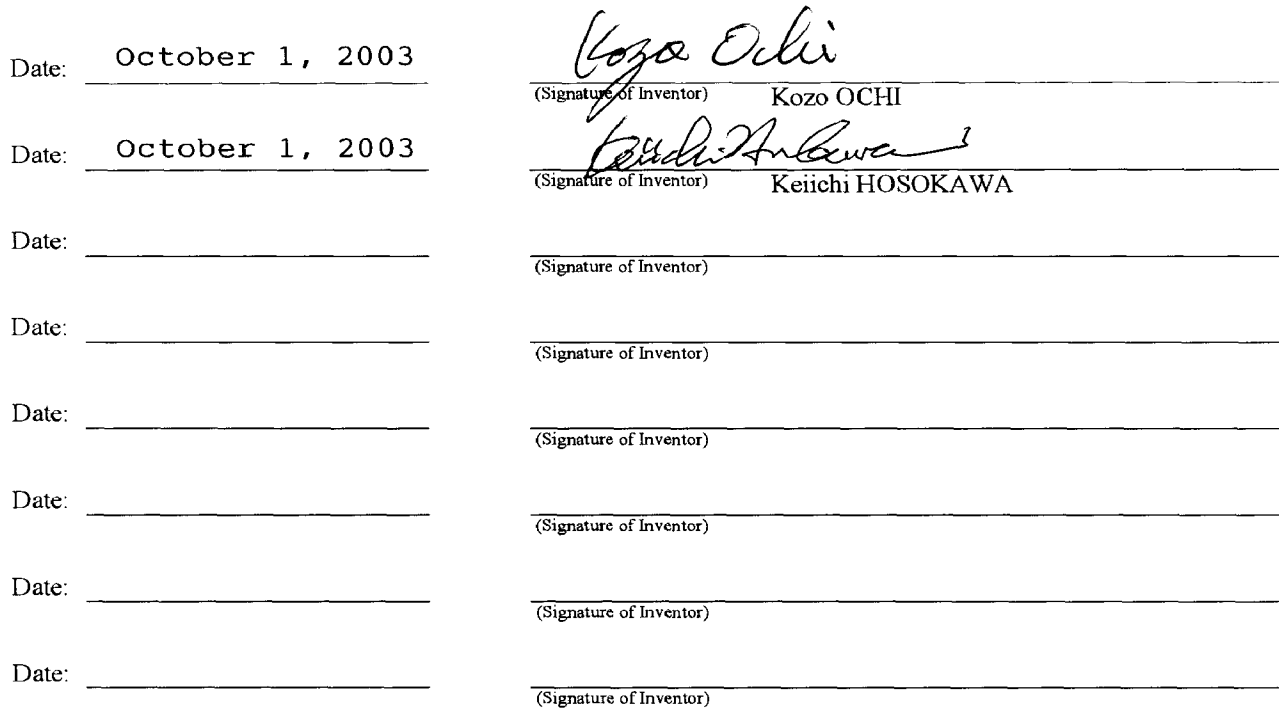 Date: October 1, 2003 Kozo Ochi
(Signature of Inventor) Kozo OCHI
Date: October 1, 2003 Keiichi Hosokawa
(Signature of Inventor) Keiichi HOSOKAWA
Date:
(Signature of Inventor)
Date:
(Signature of Inventor)
Date:
(Signature of Inventor)
Date:
(Signature of Inventor)
Date:
(Signature of Inventor)
Date:
(Signature of Inventor)